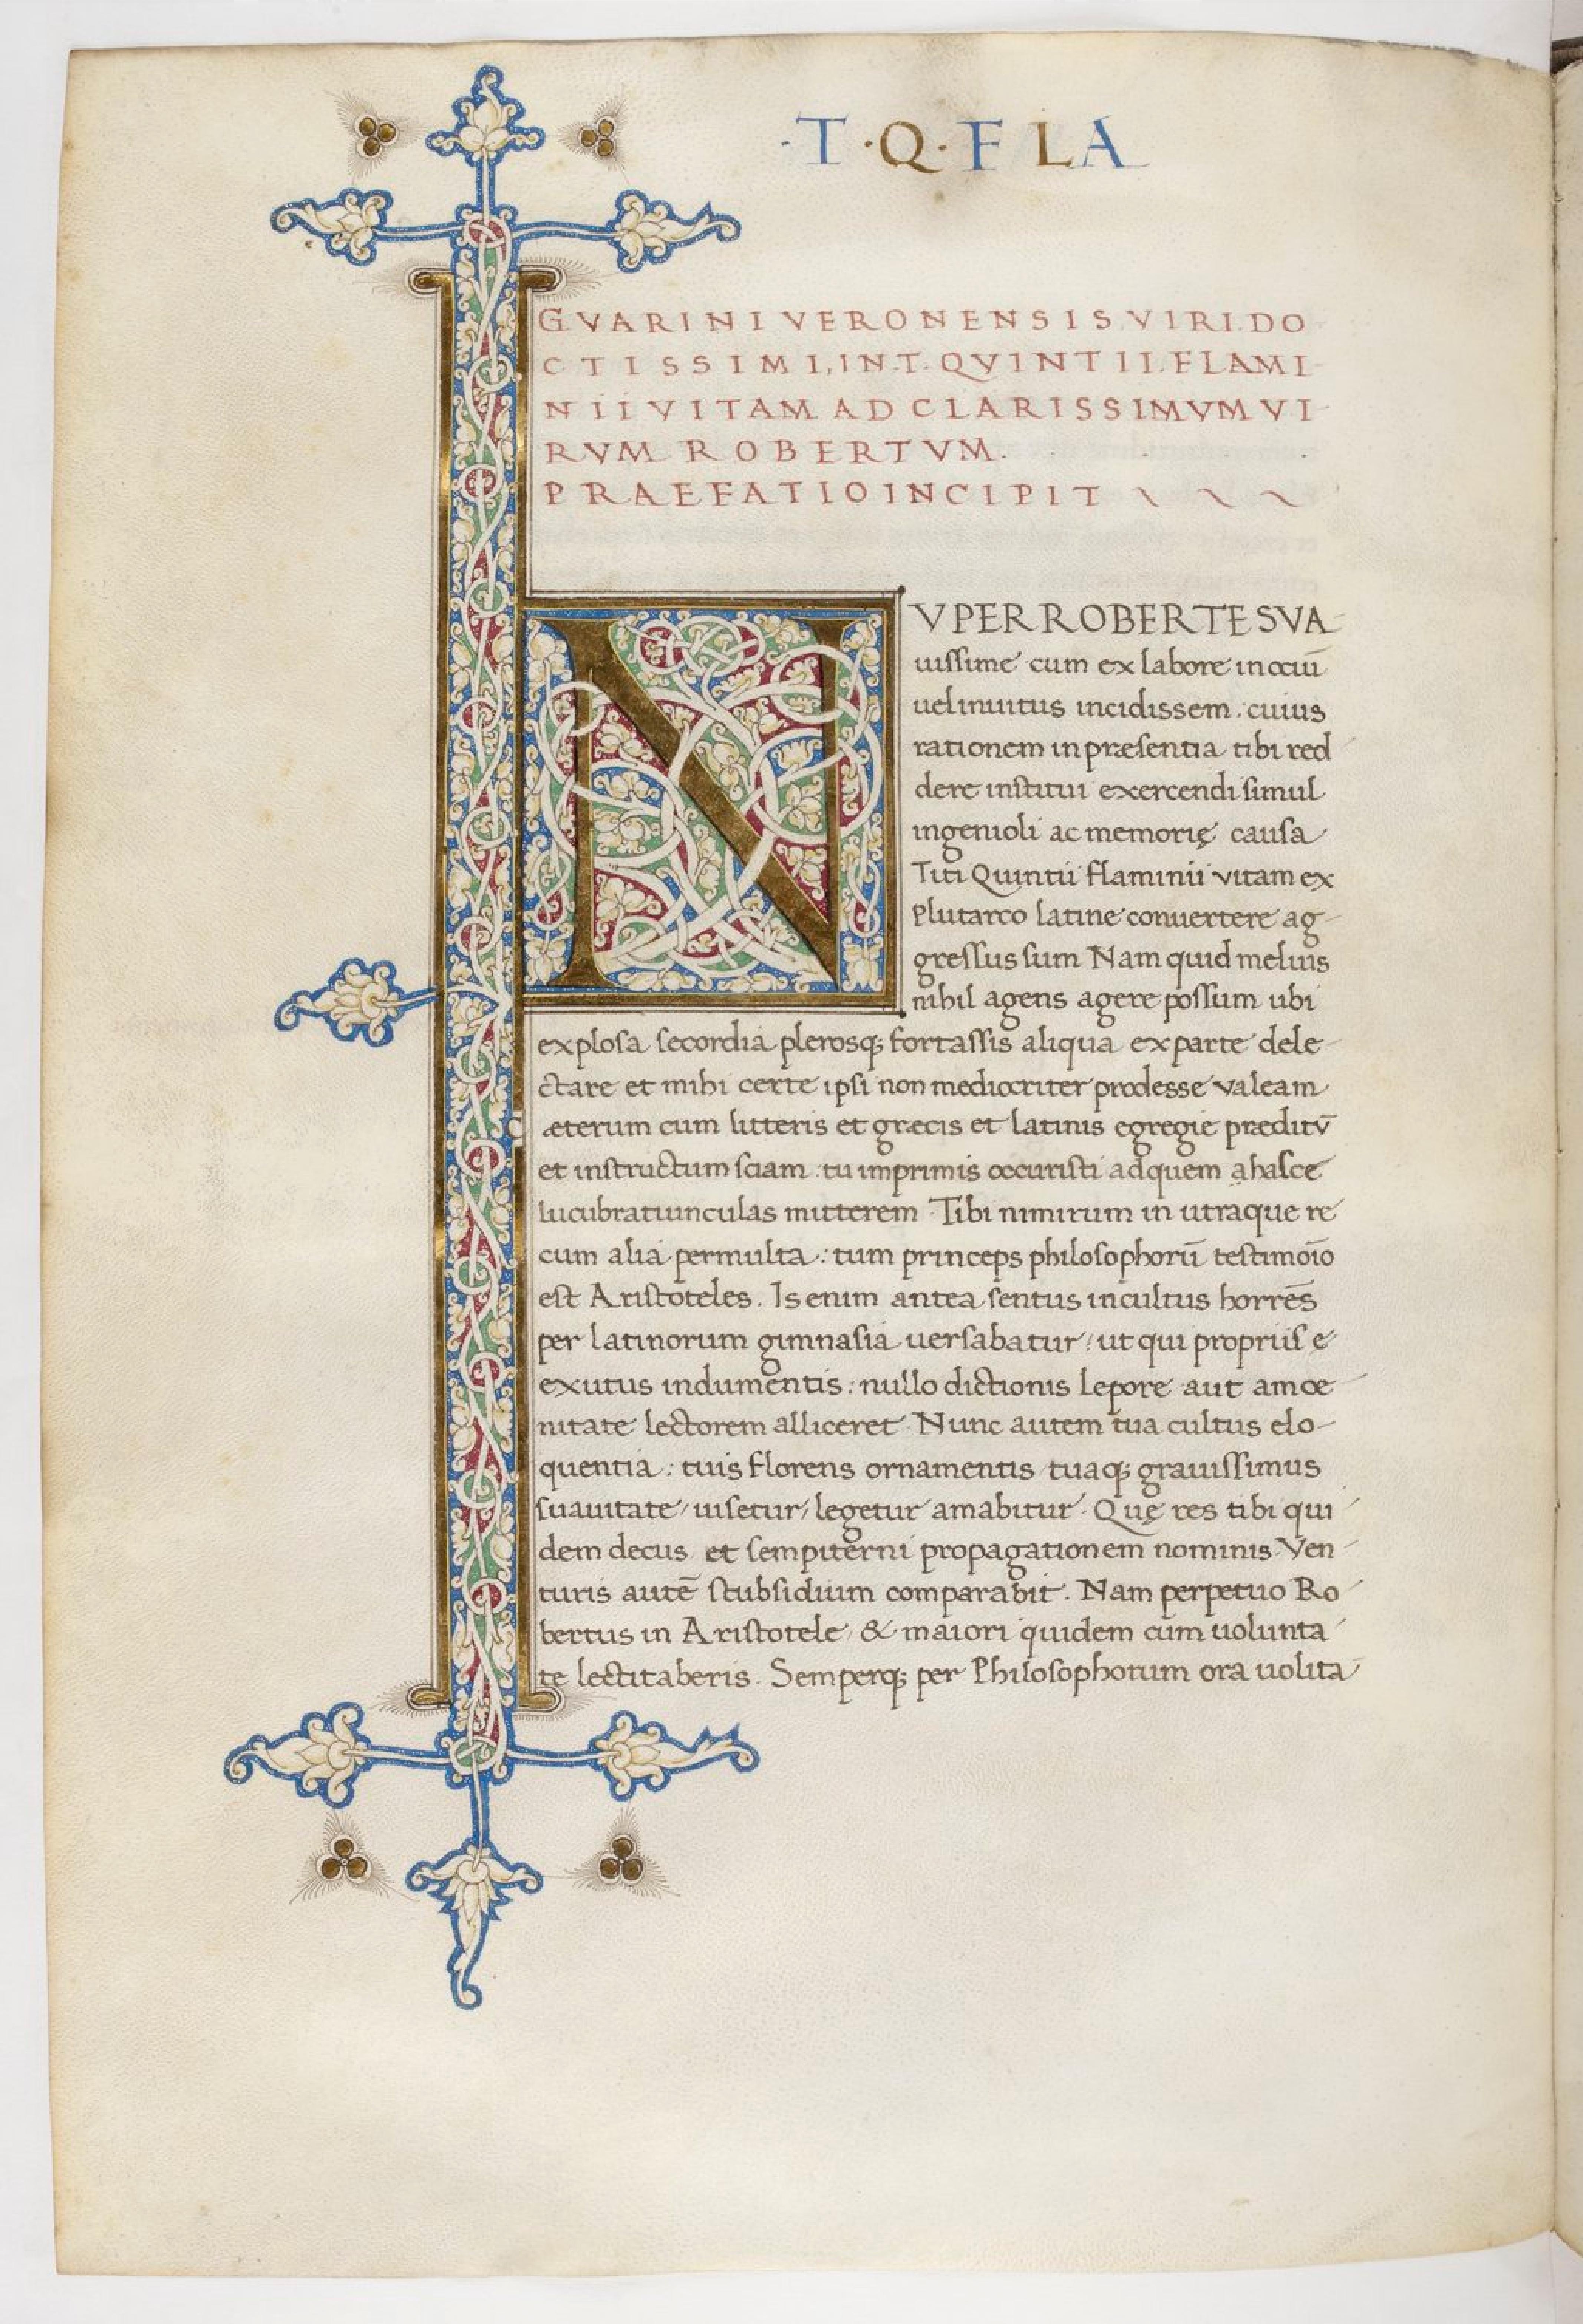 ·T·Q·F LA
GVARINI VERONENSIS VIRI DO
CTISSIMI, IN.T. QVINTII FLAMI
NII VITAM AD CLARISSIMVM VI
RVM ROBERTVM.
PRAEFATIO INCIPIT
NVPER ROBERTE SVA
uissime cum ex labore in ociū
uel inuitus incidissem: cuius
rationem in præsentia tibi red
dere institui exercendi simul
ingenioli ac memorię causa
Titi Quintii flaminii vitam ex
Plutarco latine conuertere ag
gressus sum Nam quid melius
nihil agens agere possum ubi
explosa secordia plerosq; fortassis aliqua ex parte dele
ctare et mihi certe ipsi non mediocriter prodesse valeam
Cæterum cum litteris et græcis et latinis egregie præditū
et instructum sciam: tu imprimis occuristi ad quem ahasce
lucubratiunculas mitterem Tibi nimirum in utraque re
cum alia permulta: tum princeps philosophorū testimoīo
est Aristoteles. Is enim antea sentus incultus horrēs
per latinorum gimnasia uersabatur: ut qui propriis e
exutus indumentis: nullo dictionis lepore aut amoe
nitate lectorem alliceret. Nunc autem tua cultus elo
quentia: tuis florens ornamentis tuaq; grauissimus
suauitate/uisetur/legetur amabitur. Quę res tibi qui
dem decus et sempiterni propagationem nominis. Ven
turis autē stubsidium comparabit. Nam perpetuo Ro
bertus in Aristotele/ & maiori quidem cum uolunta
te lectitaberis. Semperq; per Philosophorum ora uolita